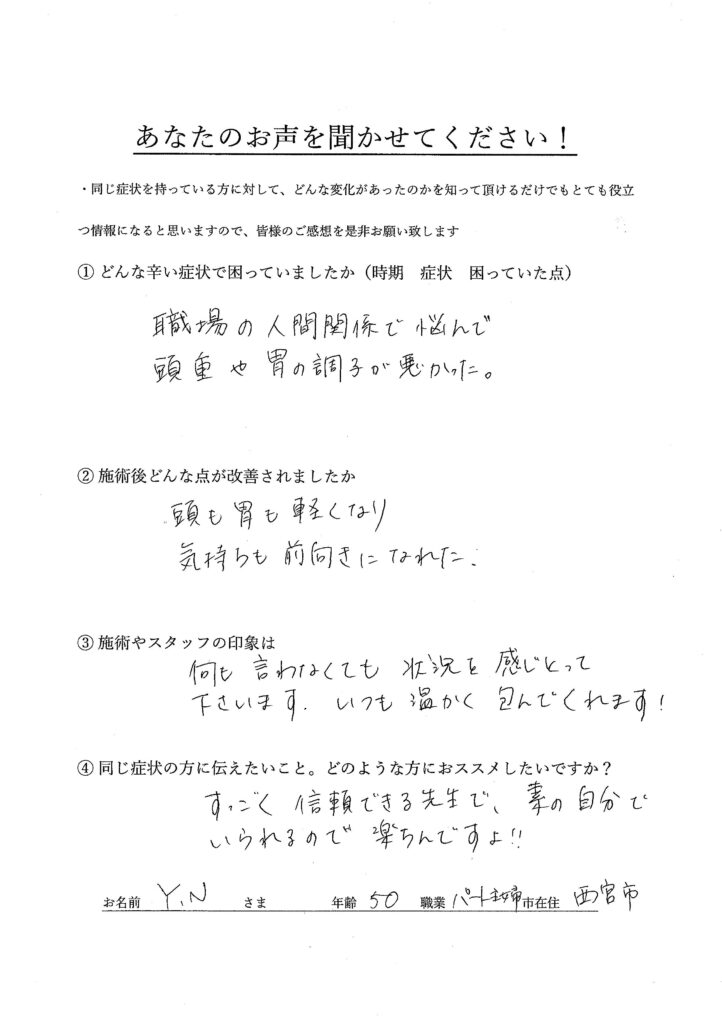 あなたのお声を聞かせてください！
・同じ症状を持っている方に対して、どんな変化があったのかを知って頂けるだけでもとても役立
つ情報になると思いますので、皆様のご感想を是非お願い致します
① どんな辛い症状で困っていましたか（時期　症状　困っていた点）
職場の人間関係で悩んで
頭重や胃の調子が悪かった。
② 施術後どんな点が改善されましたか
頭も胃も軽くなり
気持ちも前向きになれた.
③ 施術やスタッフの印象は
何も言わなくても状況を感じとって
下さいます. いつも温かく包んでくれます!
④ 同じ症状の方に伝えたいこと。どのような方におススメしたいですか？
すっごく信頼できる先生で、素の自分で
いられるので楽ちんですよ!!
お名前 Y.N さま 年齢 50 職業 パート主婦 市在住 西宮市